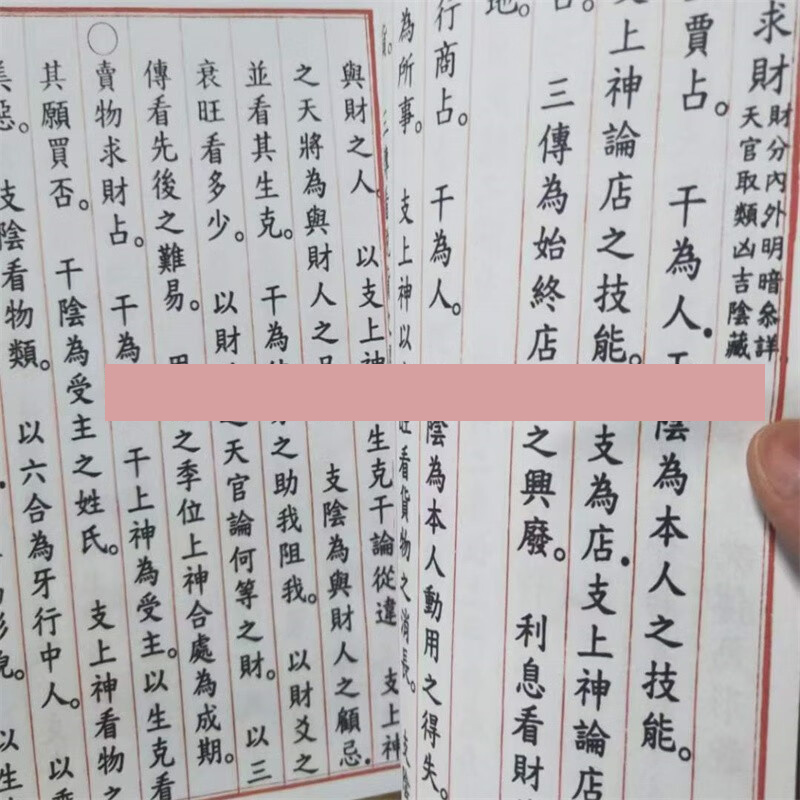 求財
財分內外明暗叅詳
天官取類凶吉陰藏
賈占。 干為人．陰為本人之技能。
上神論店之技能。支為店．支上神論店
三傳為始終店之興廢。 利息看財
地。
行商占。 干為人。陰為本人動用之得失。
為所事。 支上神以旺看貨物之消長。
與財之人。 以支上神生克干論從違 支上神
之天將為與財人之 支陰為與財人之顧忌．
並看其生克。 干為之助我阻我。 以財爻之
衰旺看多少。 以財之天官論何等之財。 以三
傳看先後之難易。 之季位上神合處為成期。
○賣物求財占。 干為 干上神為受主。以生克看
其願買否。 干陰為受主之姓氏。 支上神看物之
美惡。 支陰看物類。 以六合為牙行中人。 以
形貌。 以生